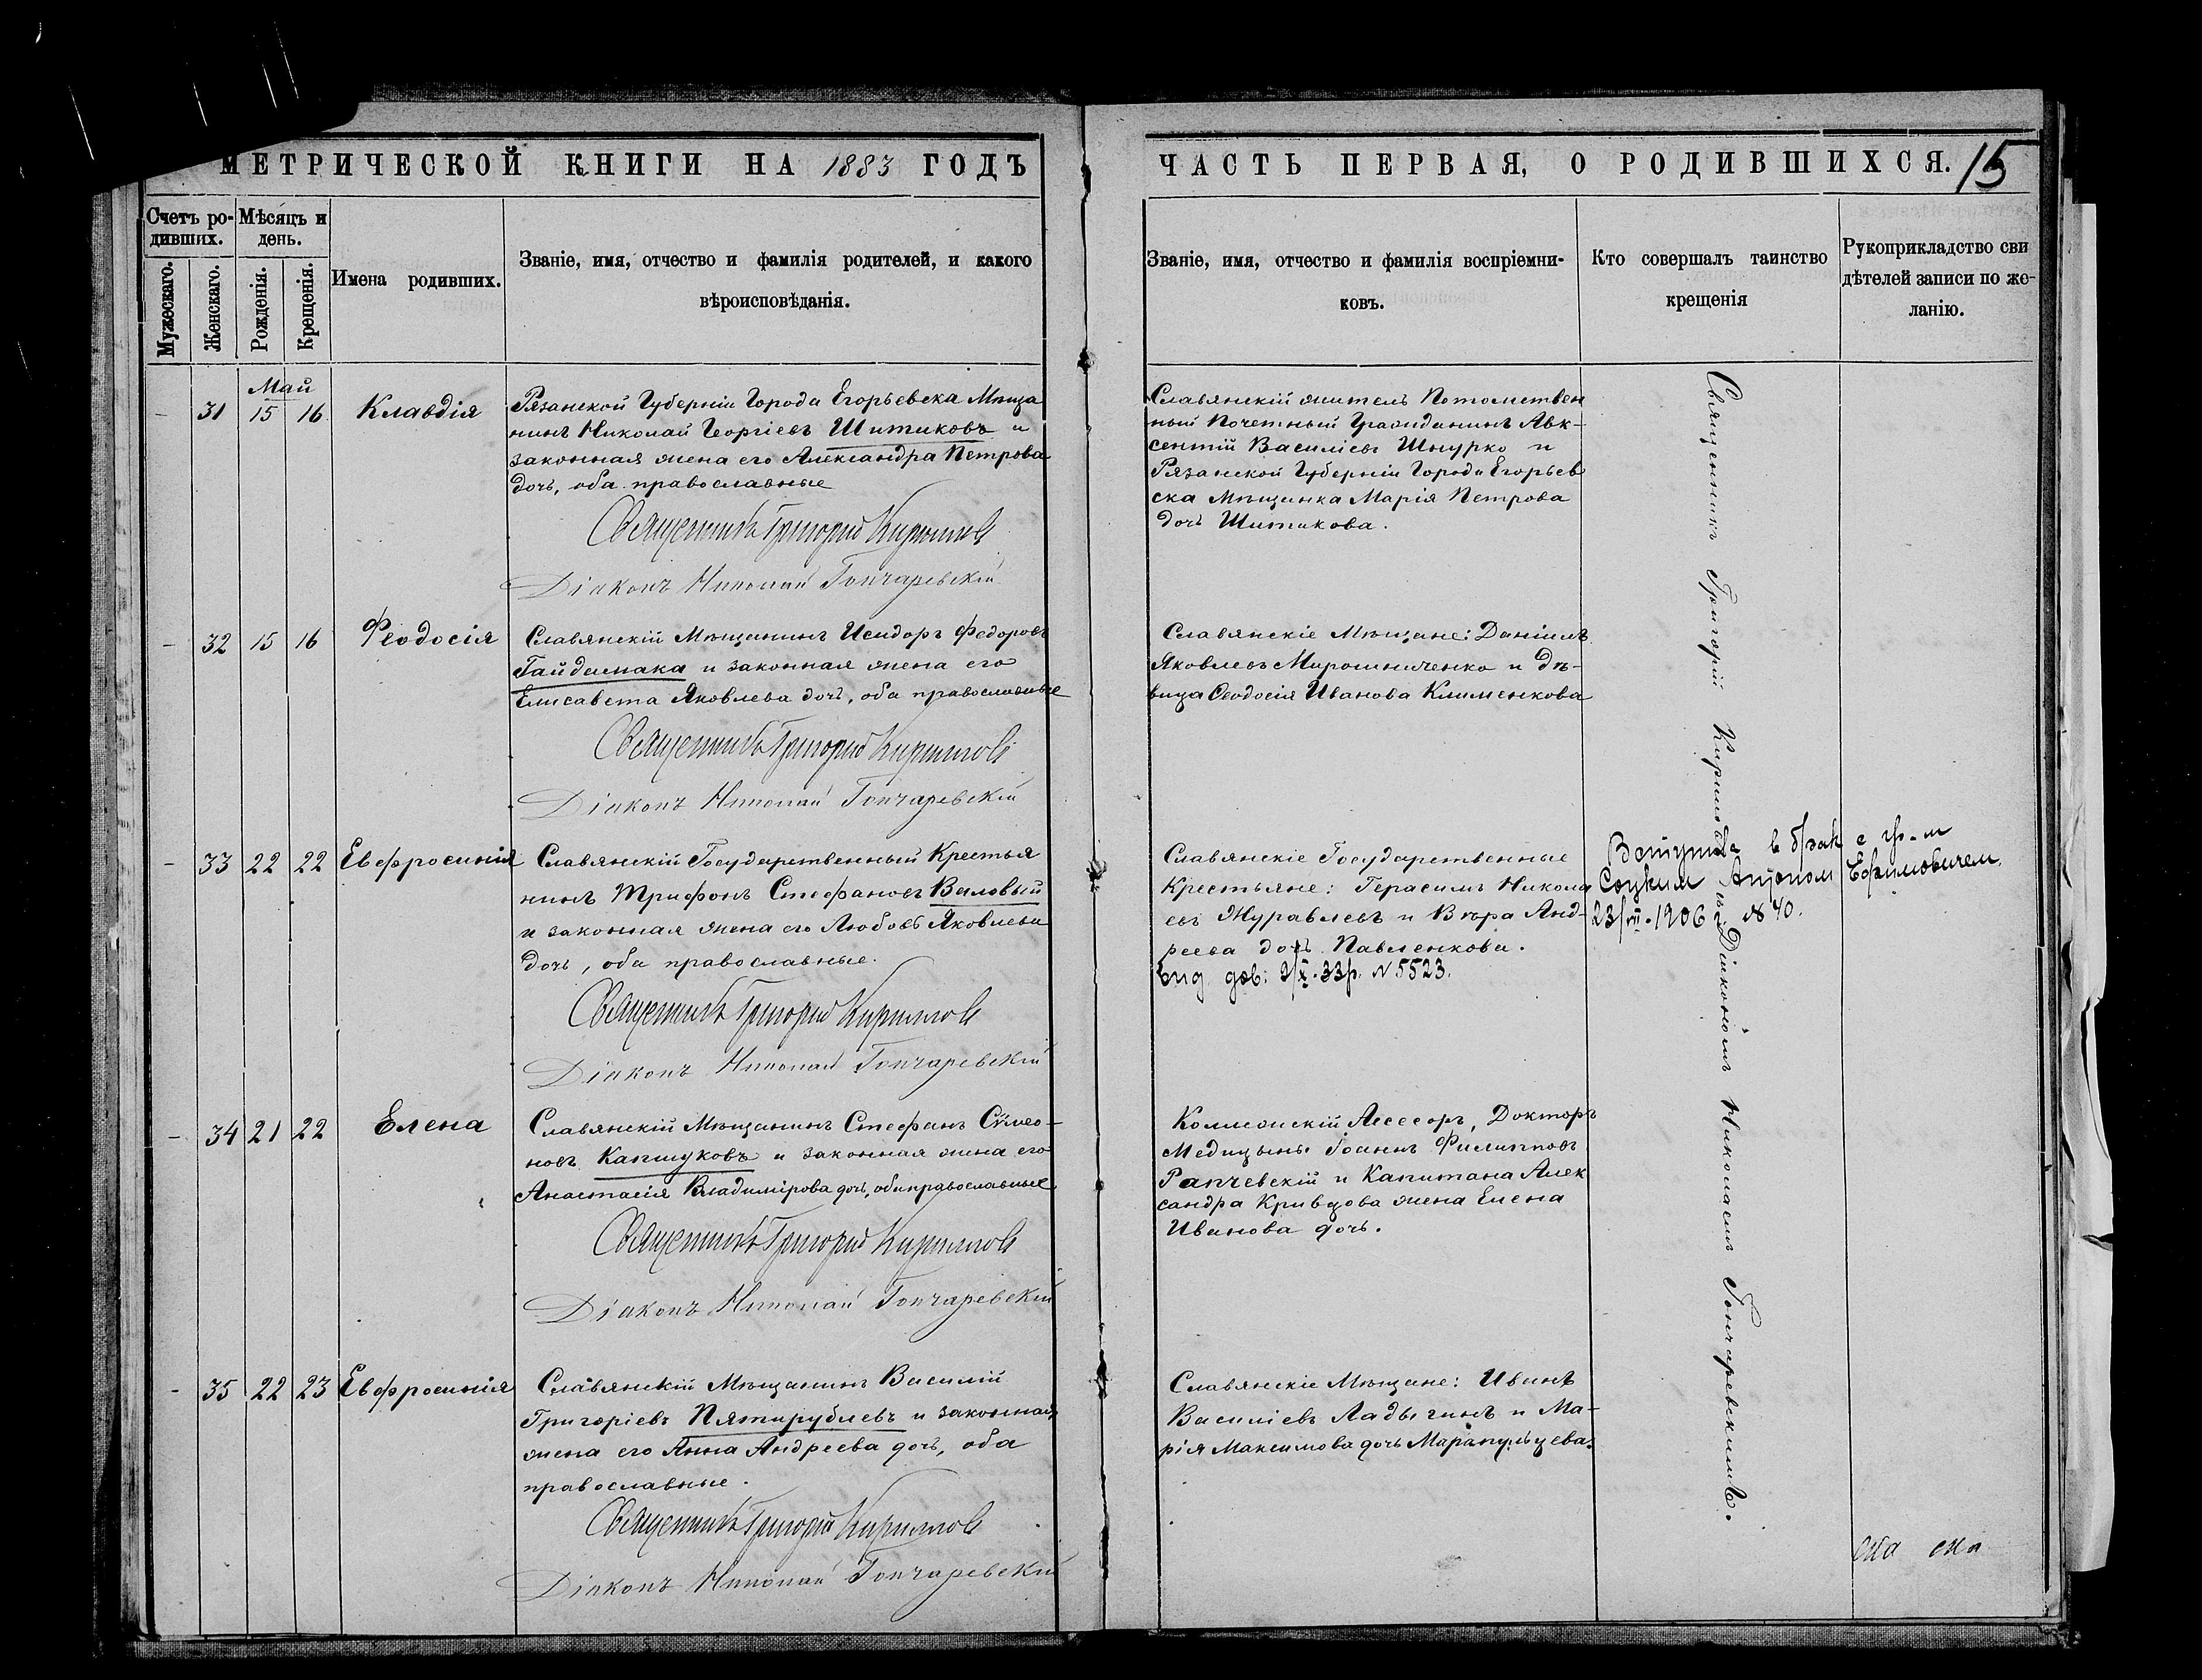 МЕТРИЧЕСКОЙ КНИГИ НА 1883 ГОДЪ
Счетъ ро-
дившихъ.
Мѣсяцъ и
день.
Мужескаго.
Женскаго.
Рожденія.
Крещенія.
Имена родивших.
Званіе, имя, отчество и фамилія родителей, и какого
вѣроисповѣданія.
Май
— 31 15 16 Клавдія
Рязанской Губерніи Города Егорьевска Мѣща
нинъ Николай Георгіевъ Шитиковъ и
законная жена его Александра Петрова
дочь, оба православные
Священникъ Григорій Кирилловъ
Діаконъ Николай Гончаревскій
— 32 15 16 Феодосія
Славянскій Мѣщанинъ Исидоръ Федоровъ
Гайдамака и законная жена его
Елисавета Яковлева дочь, оба православные
Священникъ Григорій Кирилловъ
Діаконъ Николай Гончаревскій
— 33 22 22 Евфросинія
Славянскій Государственный Крестья
нинъ Трифонъ Стефановъ Валовый
и законная жена его Любовь Яковлева
дочь, оба православные.
Священникъ Григорій Кирилловъ
Діаконъ Николай Гончаревскій
— 34 21 22 Елена
Славянскій Мѣщанинъ Стефанъ Сѵмео-
новъ Капшуковъ и законная жена его
Анастасія Владимірова дочь, оба православные
Священникъ Григорій Кирилловъ
Діаконъ Николай Гончаревскій
- 35 22 23 Евфросинія
Славянскій Мѣщанинъ Василій
Григоріевъ Пятирублевъ и законная
жена его Анна Андреева дочь, оба
православные.
Священникъ Григорій Кирилловъ
Діаконъ Николай Гончаревскій
ЧАСТЬ ПЕРВАЯ, О РОДИВШИХСЯ. 15
Званіе, имя, отчество и фамилія воспріемни-
ковъ.
Кто совершалъ таинство
крещенія
Рукоприкладство сви
дѣтелей записи по же-
ланію.
Славянскій житель Потомствен
ный Почетный Гражданинъ Авк-
сентій Василіевъ Шнурко и
Рязанской Губерніи Города Егорьев
ска Мѣщанка Марія Петрова
дочь Шитикова.
Славянскіе Мѣщане: Даніилъ
Яковлевъ Мирошниченко и дѣ-
вица Феодосія Иванова Клименкова
Славянскіе Государственные
Крестьяне: Герасимъ Никола
евъ Журавлевъ и Вѣра Анд-
реева дочь Павленкова.
Вид дов: 9/X.33р. N 5523.
Коллежскій Ассесоръ, Докторъ
Медицины Іоаннъ Филипповъ
Рапчевскій и Капитана Алек
сандра Кривцова жена Елена
Иванова дочь.
Славянскіе Мѣщане: Иванъ
Василіевъ Ладыгинъ и Ма-
рія Максимова дочь Марапульцева.
Священникъ Григорій Кирилловъ съ Діакономъ Николаемъ Гончаревскимъ.
Вступила в брак с гр-м
Соцким Антоном Ефимовичем
23/VII.1906 № 40.